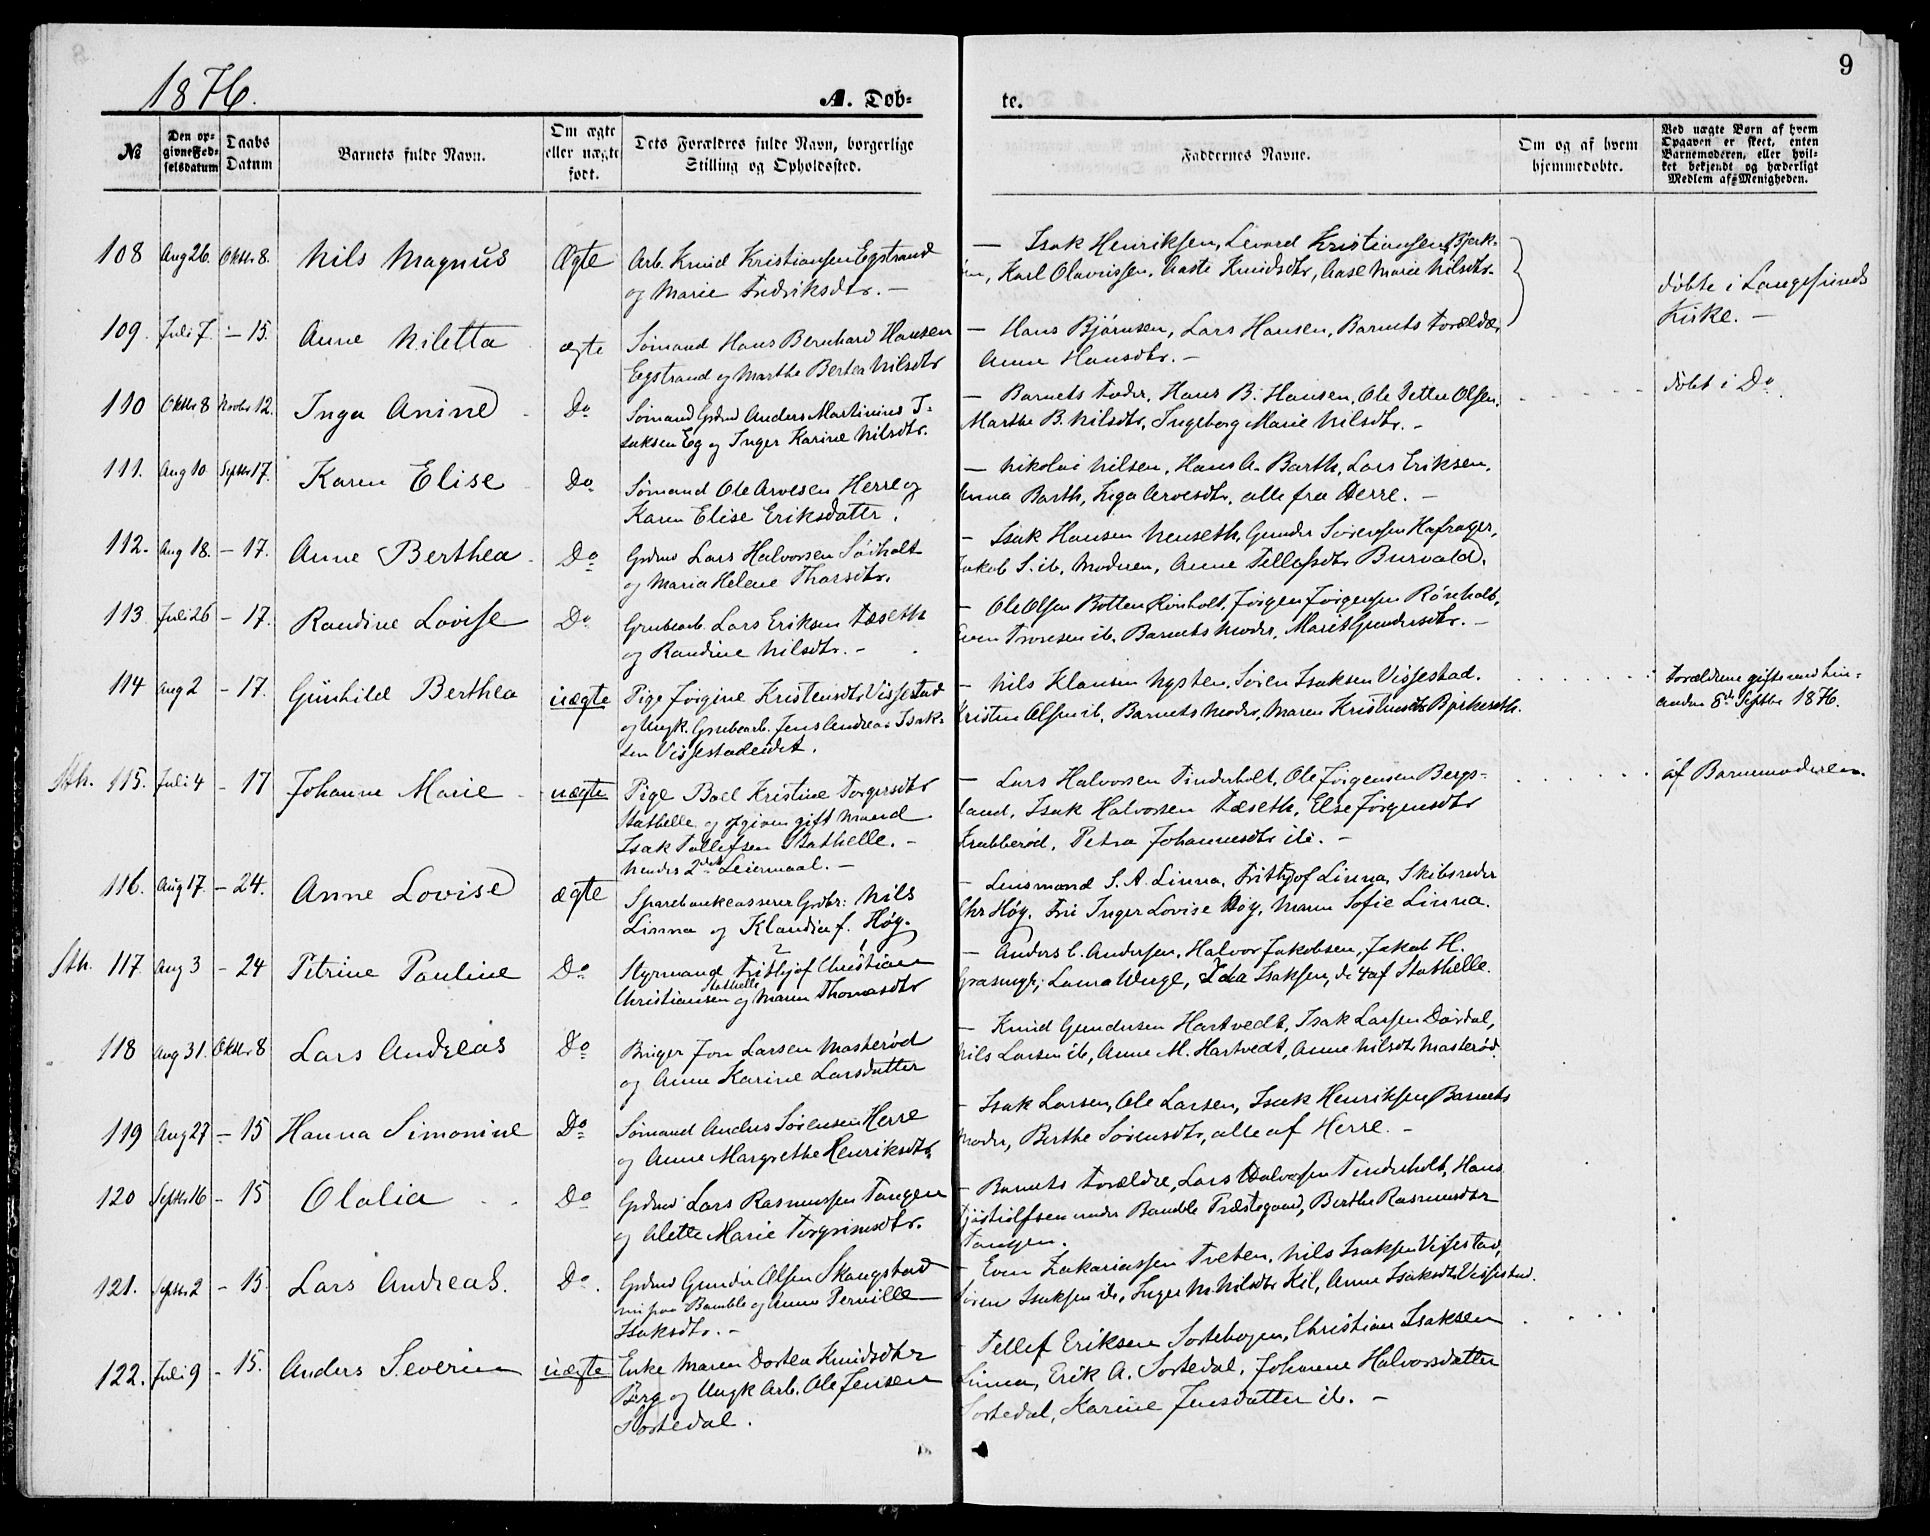 9
1876.
A. Døb-
te.
№
Den op-
givne Fød-
selsdatum
Daabs
Datum
Barnets fulde Navn.
Om ægte
eller uægte
født.
Dets Forældres fulde Navn, borgerlige
Stilling og Opholdssted.
Faddernes Navne.
Om og af hvem
hjemmedøbte.
Ved uægte Børn af hvem
Opgaven er skeet, enten
Barnemoderen, eller hvil-
ket bekjendt og hæderligt
Medlem af Menigheden.
108 Aug 26. Oktbr 8. Nils Magnus Ægte Arb. Knud Kristiansen Egstrand
og Marie Fredriksdtr. —
— Isak Henriksen, Levord Kristiansen Bjerk-
Karl Olavussen, Aaste Knudsdtr, Aase Marie Nilsdtr.
døbte i Langesunds
Kirke. —
109. Juli 7. — 15. Anne Niletta ægte Sømand Hans Bernhard Hansen
Egstrand og Marthe Berthea Nilsdtr
— Hans Bjørnsen, Lars Hansen, Barnets Forældre,
Anne Hansdtr. —
110 Oktbr 8 Novbr 12. Inga Anine Do Sømand Grdmd Anders Martinius I-
saksen Eg og Inger Karine Nilsdtr.
— Barnets Fader, Hans B. Hansen, Ole Petter Olsen,
Marthe B. Nilsdtr, Ingeborg Marie Nilsdtr. —
døbt i Do
111. Aug 10 Septbr 17. Karen Elise Do Sømand Ole Arvesen Herre og
Karen Elise Eriksdatter.
— Nikolai Nilsen, Hans A. Barth, Lars Eriksen,
Anna Barth, Inga Arvesdtr, alle fra Herre. —
112. Aug 18. — 17. Anne Berthea Do Grdmd Lars Halvorsen Søiholt
og Maria Helene Tharsdtr.
— Isak Hansen Nenseth, Gunder Sørensen Hafsager,
Jakob S. ib, Moderen, Anne Tellefsdtr Burvald.
113 Juli 26 — 17. Randine Lovise Do Grubearb. Lars Eriksen Fæseth
og Randine Nilsdtr. —
— Ole Olsen Botten Rønholt, Jørgen Jørgensen Rønholt,
Even Thoresen ib, Barnets Moder, Marit Gundersdtr. —
114 Aug 2 — 17. Gunhild Berthea uægte Pige Jørgine Kristensdtr Vissestad
og Ungk. Grubearb. Jens Andreas Isak-
sen Vissestadeidet.
— Nils Klausen Nysten, Søren Isaksen Vissestad.
Kristen Olsen ib, Barnets Moder, Maren Kristensdtr Bjørkeseth.
Forældrene gifte med hin-
anden 8de Septbr 1876.
Sth. 115. Juli 4 — 17 Johanne Marie uægte Pige Boel Kristine Torgersdtr
Stathelle og opgiven gift Mand
Isak Tellefsen Stathelle. —
hendes 2det Leiermaal. —
— Lars Halvorsen Tinderholt, Ole Jørgensen Bergs-
land, Isak Halvorsen Fæseth, Else Jørgensdtr
Krabberød, Petra Johannesdtr ib. —
af Barnemoderen.
116. Aug 17. — 24. Anne Lovise ægte Sparebankcasserer Grdbr: Nils
Linna og Klaudia f. Høg.
— Lensmand S. A. Linna, Frithjof Linna, Skibsreder
Chr Høg, Fru Inger Lovise Høg, Maren Sofie Linna.
Sth. 117. Aug 3 — 24 Petrine Pauline Do Styrmand Frithjof Christian
Christiansen Stathelle og Maren Thomasdtr
— Anders C. Andersen, Halvor Jakobsen, Jakob H.
Laura Wenge, Ida Isaksen, de 4 af Stathelle.
118 Aug 31. Oktbr 8 Lars Andreas Do Bruger Jon Larsen Masterød
og Anne Karine Larsdatter
— Knud Gundersen Hartvedt, Isak Larsen Dørdal,
Nils Larsen ib, Anne M. Hartvedt, Anne Nilsdtr Masterød.
119 Aug 27 — 15 Hanna Simonine Do Sømand Anders Sørensen Herre
og Anne Margrethe Henriksdtr.
— Isak Larsen, Ole Larsen, Isak Henriksen, Barnets
Moder, Berthe Sørensdtr, alle af Herre. —
120 Septbr 16 — 15 Olalia Do Grdmd Lars Rasmussen Tangen
og Alette Marie Torgrimsdtr.
— Barnets Forældre, Lars Halvorsen Tinderholt, Hans
Tjøstolfsen under Bamble Præstegaard, Berthe Rasmusdtr
Tangen.
121. Septbr 2 — 15 Lars Andreas. Do. Grdmd Gunder Olsen Skaugstad
nu paa Bamble og Anne Pernille
Isaksdtr. —
— Even Zakariassen Treten, Nils Isaksen Vissestad,
Søren Isaksen ib, Inger M. Nilsdtr Kil, Anne Isaksdtr Vissestad.
122. Juli 9 — 15. Anders Severin uægte Enke Maren Dorthea Knudsdtr
Berg og Ungk Arb. Ole Jensen
Sortedal.
Tellef Eriksen Sortebogen, Christian Isaksen
Linna, Erik A. Sortedal, Johanne Halvorsdatter
Sortedal, Karine Jensdatter ib. —